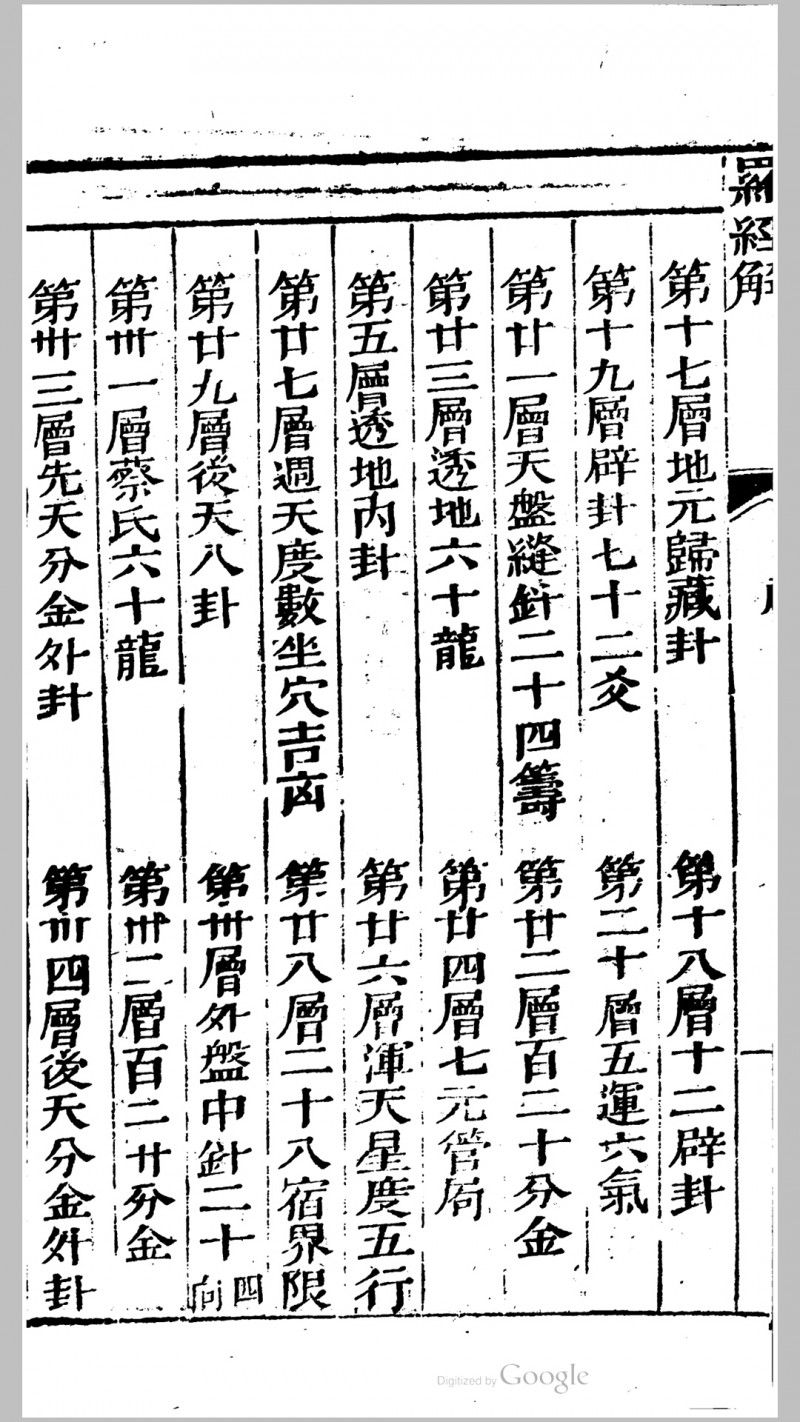 羅經解
第十七層地元歸藏卦　第十八層十二辟卦
第十九層辟卦七十二爻　第二十層五運六氣
第廿一層天盤縫針二十四籌　第廿二層百二十分金
第廿三層透地六十龍　第廿四層七元管局
第五層透地內卦　第廿六層渾天星度五行
第廿七層週天度數坐穴吉凶　第廿八層二十八宿界限
第廿九層後天八卦　第卅層外盤中針二十四向
第卅一層蔡氏六十龍　第卅二層百二廿分金
第卅三層先天分金外卦　第卅四層後天分金外卦
Digitized by Google